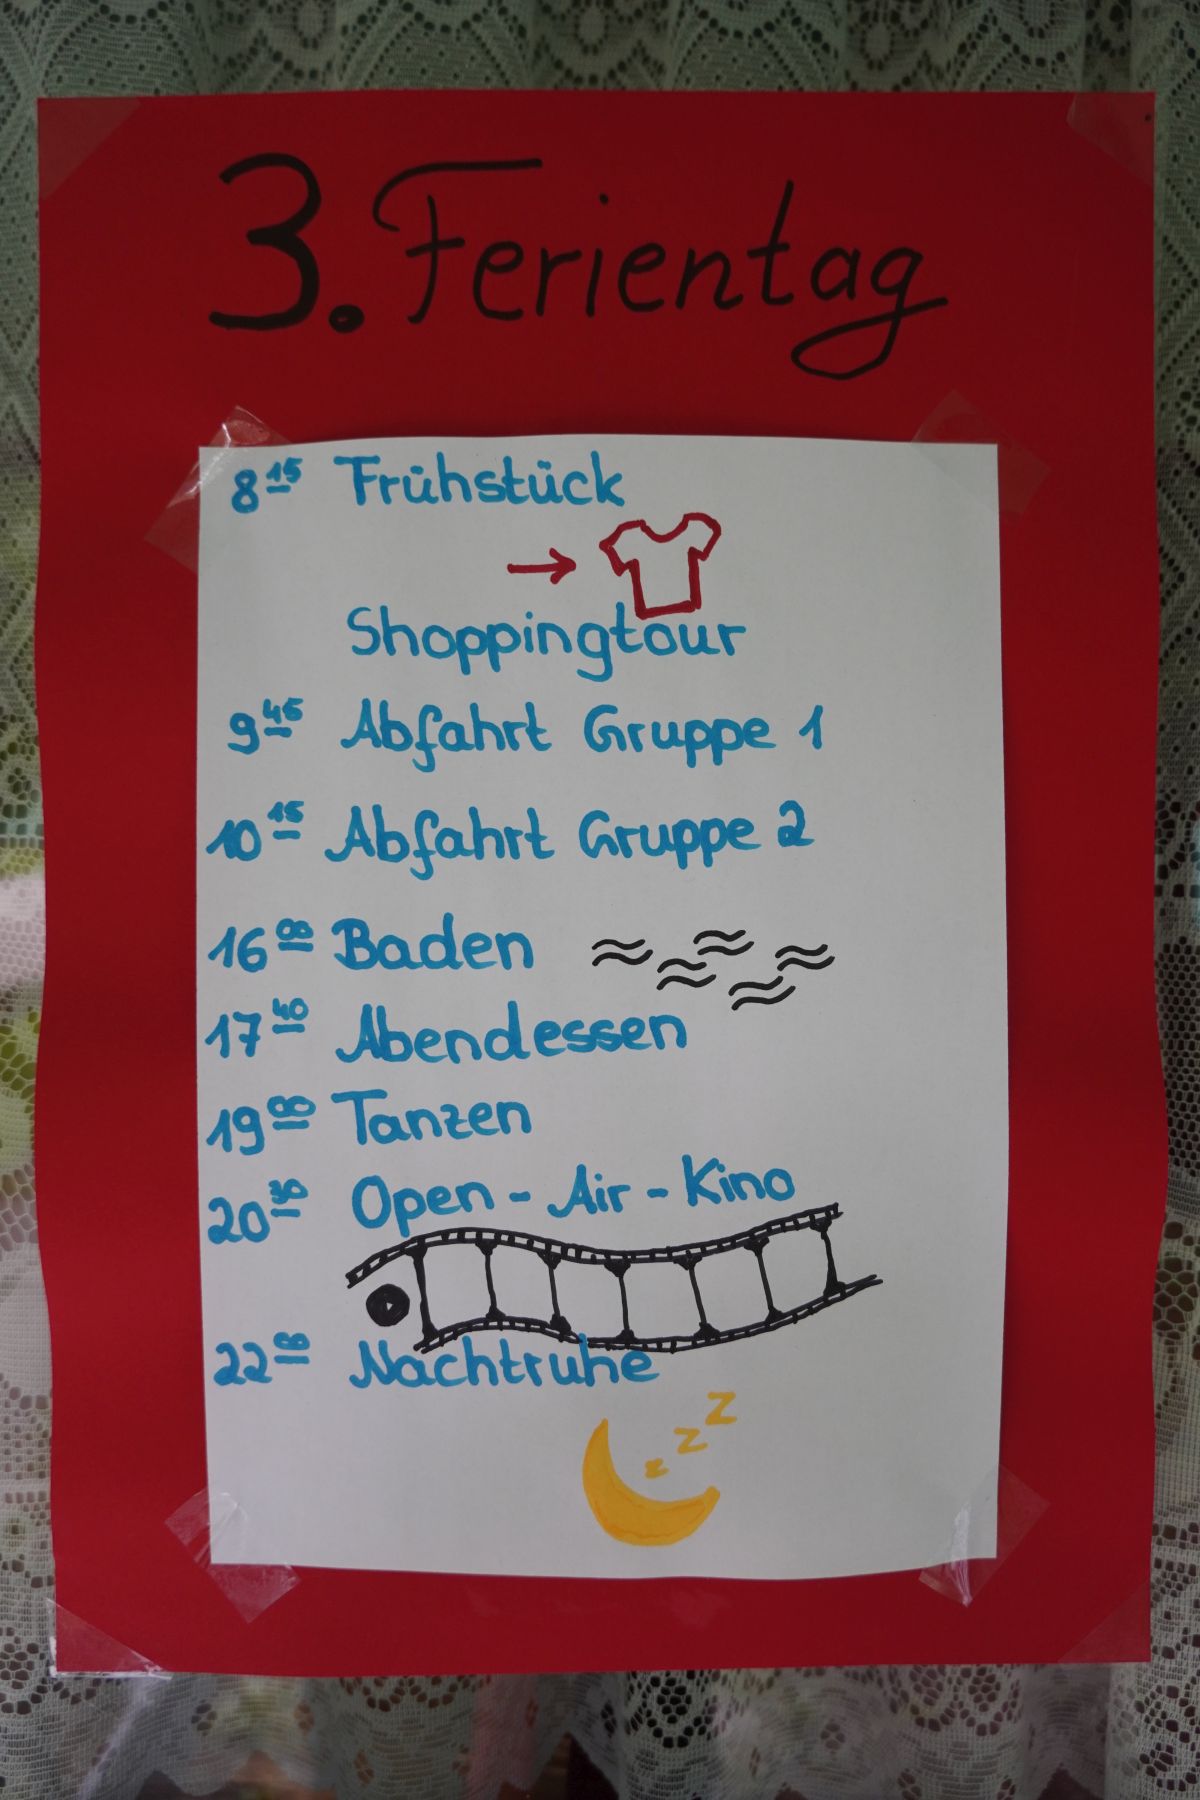 3. Ferientag
8 15 Frühstück
Shoppingtour
9 45 Abfahrt Gruppe 1
10 15 Abfahrt Gruppe 2
16 00 Baden
17 40 Abendessen
19 00 Tanzen
20 30 Open-Air-Kino
22 00 Nachtruhe
z z z